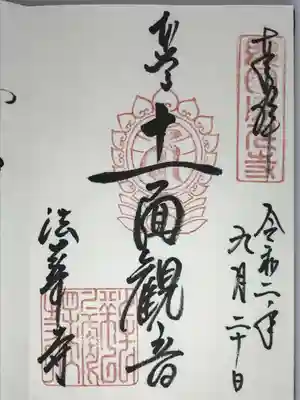 奉拝
令和二年
九月二十日
本尊
十一面觀音
法華寺